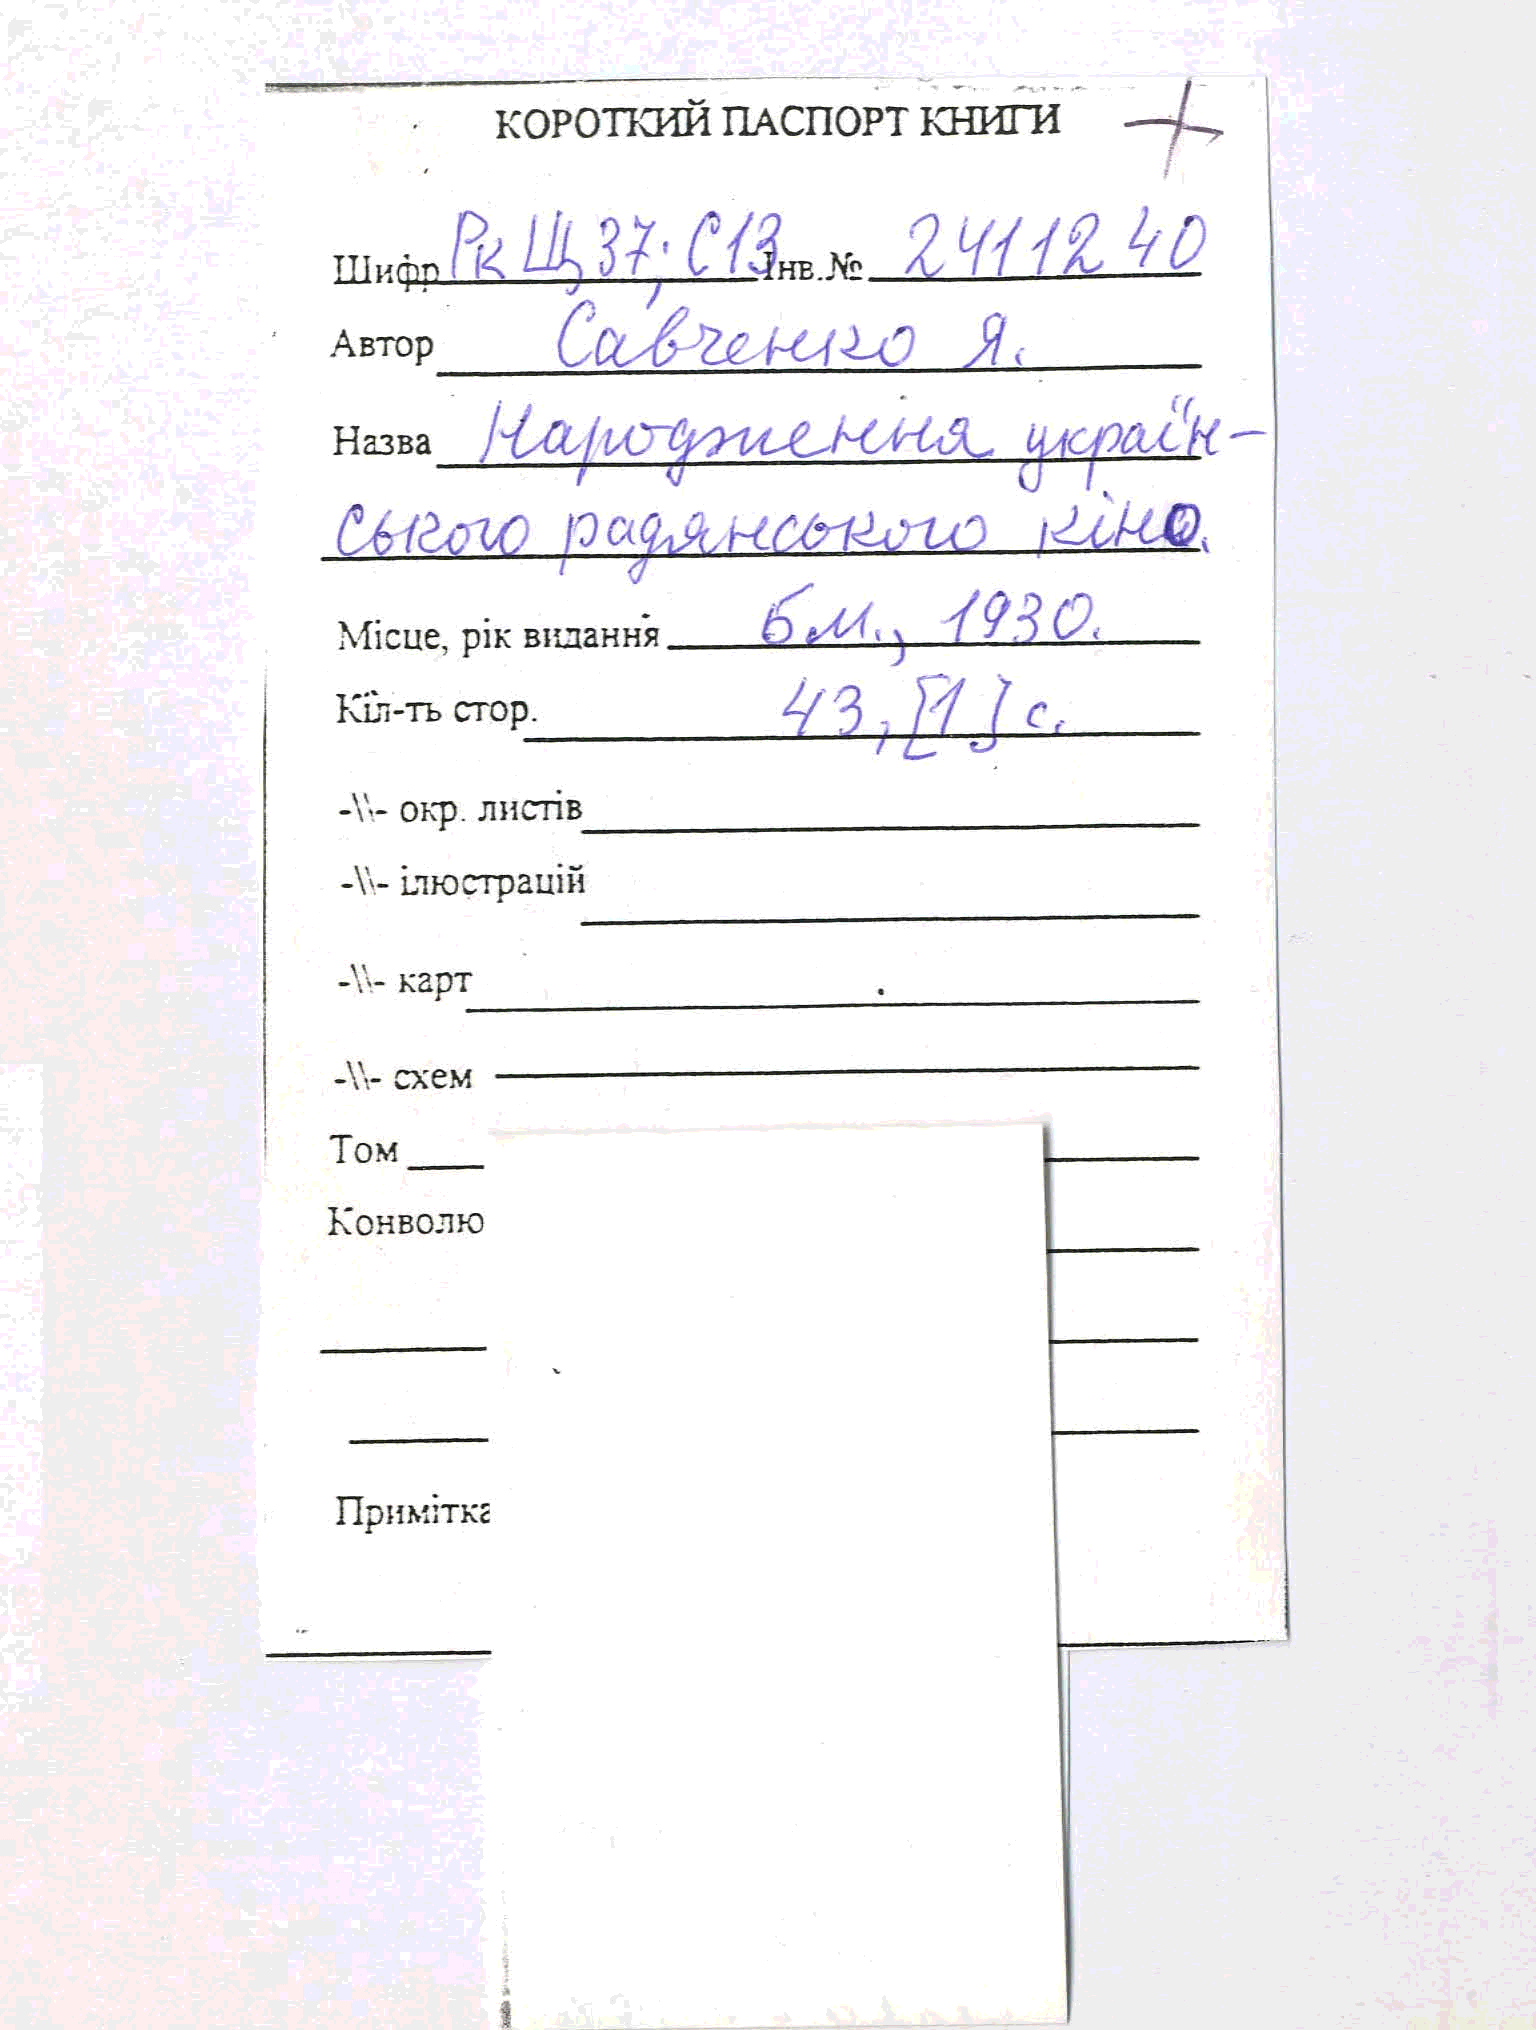 КОРОТКИЙ ПАСПОРТ КНИГИ +
Шифр Рк Щ37; С13 Інв.№ 2411240
Автор Савченко Я.
Назва Народження україн-
ського радянського кіно.
Місце, рік видання бм., 1930.
Кіл-ть стор. 43, [1] с.
-\\- окр. листів
-\\- ілюстрацій
-\\- карт
-\\- схем
Том
Конволю
Примітка